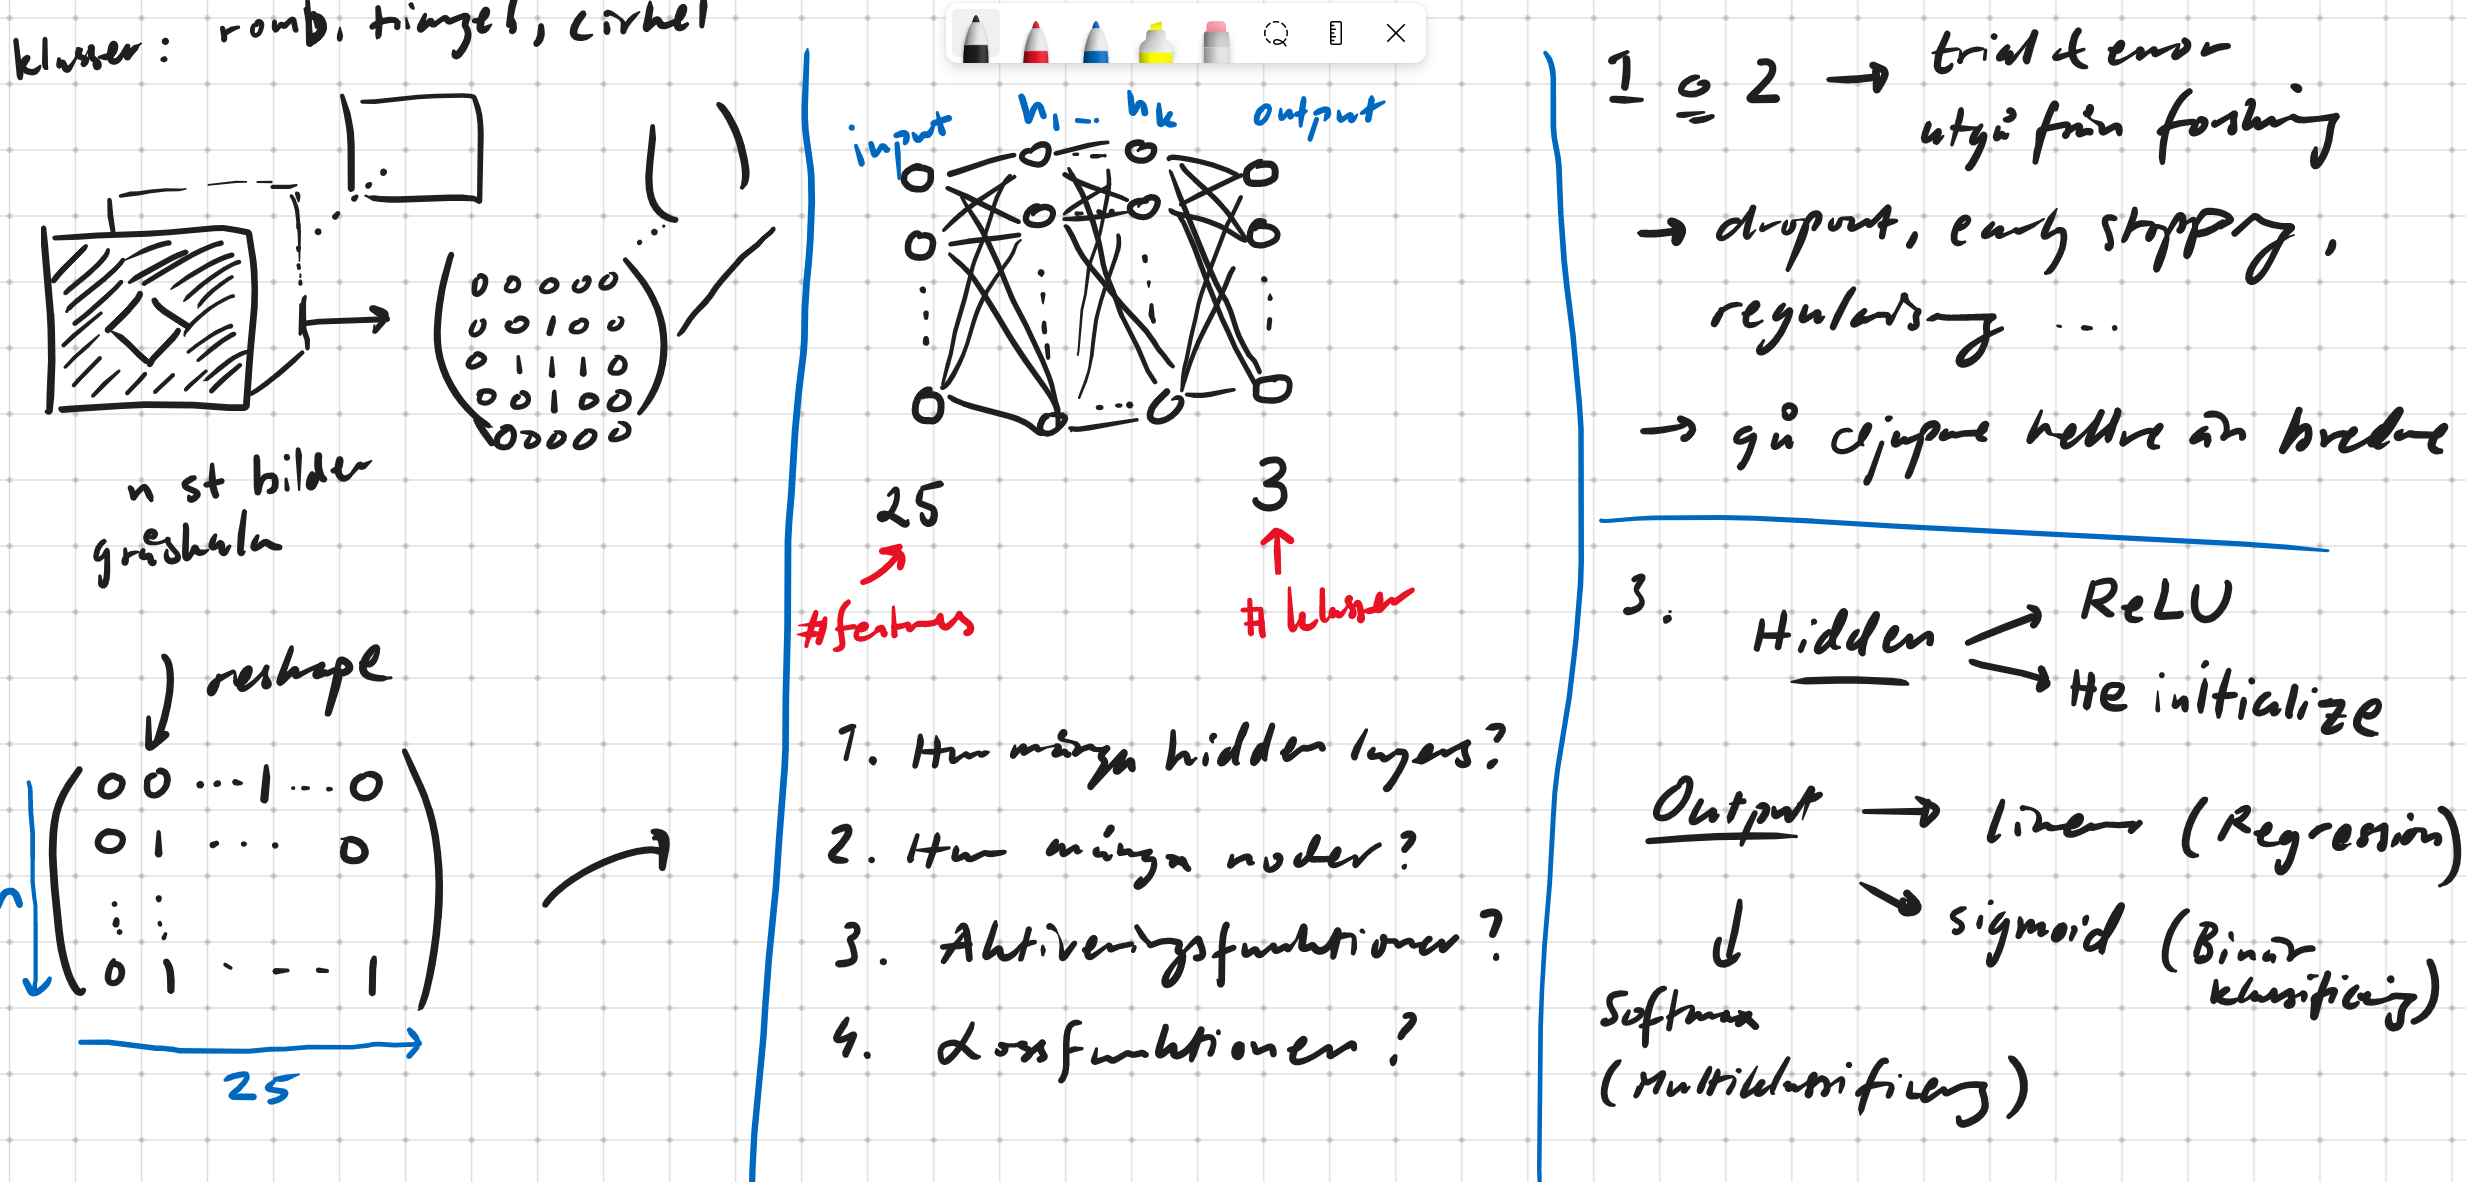 klasser: romb, triangel, cirkel
0 0 0 0 0
0 0 1 0 0
0 1 1 1 0
0 0 1 0 0
0 0 0 0 0
n st bilder
gråskala
reshape
0 0 ... 1 ... 0
0 1 ... 0
0 1 - - - 1
n
25
input h1 -- hk output
25 3
#features # klasser
1. Hur många hidden layers?
2. Hur många noder?
3. Aktiveringsfunktioner?
4. Lossfunktionen?
1 o 2 → trial & error
utgå från forskning
→ dropout, early stopping,
regularisering ...
→ gå djupare hellre än bredare
3.
Hidden
ReLU
He initialize
Output → linear (Regression)
sigmoid (Binär
klassificering)
Softmax
(Multiklassificering)